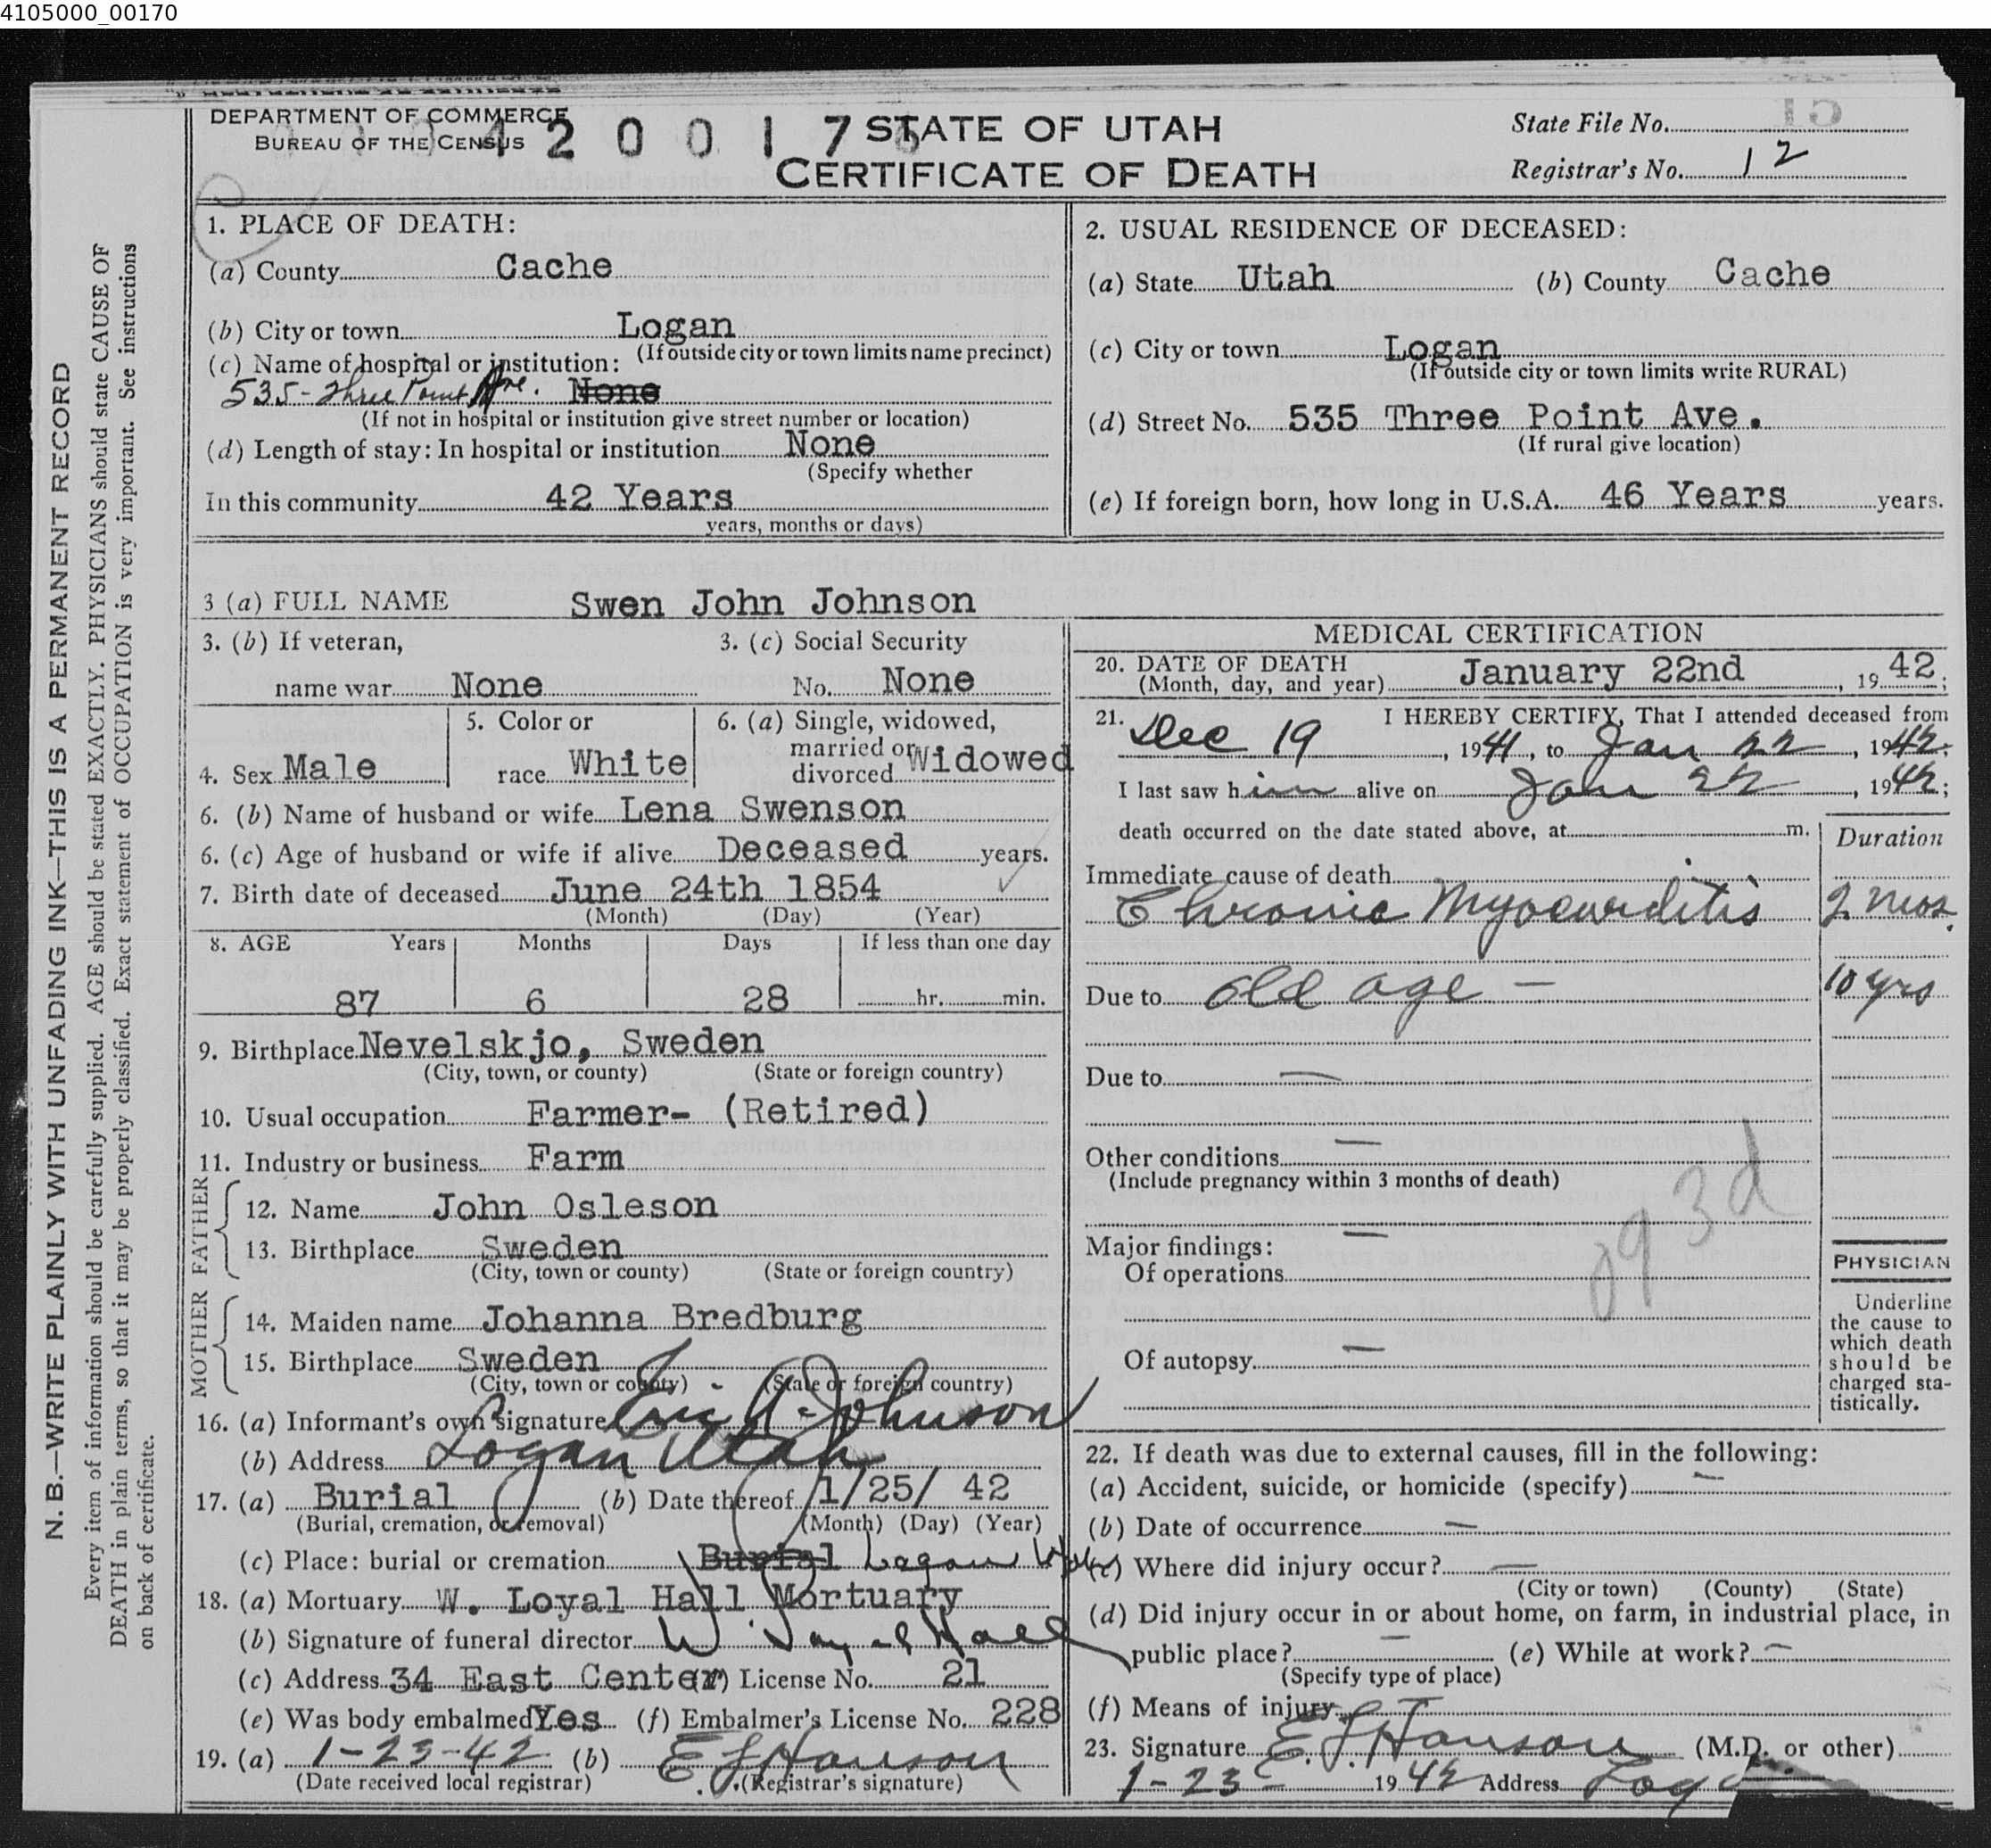 4105000_00170
DEPARTMENT OF COMMERCE
BUREAU OF THE CENSUS
4 2 0 0 1 7
STATE OF UTAH
CERTIFICATE OF DEATH
State File No.
Registrar's No. 12
N. B.—WRITE PLAINLY WITH UNFADING INK—THIS IS A PERMANENT RECORD
Every item of information should be carefully supplied. AGE should be stated EXACTLY. PHYSICIANS should state CAUSE OF
DEATH in plain terms, so that it may be properly classified. Exact statement of OCCUPATION is very important. See instructions
on back of certificate.
1. PLACE OF DEATH:
(a) County Cache
(b) City or town Logan
(If outside city or town limits name precinct)
(c) Name of hospital or institution:
535 - Three Point Ave. None
(If not in hospital or institution give street number or location)
(d) Length of stay: In hospital or institution None
(Specify whether
In this community 42 Years
years, months or days)
2. USUAL RESIDENCE OF DECEASED:
(a) State Utah (b) County Cache
(c) City or town Logan
(If outside city or town limits write RURAL)
(d) Street No. 535 Three Point Ave.
(If rural give location)
(e) If foreign born, how long in U.S.A. 46 Years years.
3 (a) FULL NAME Swen John Johnson
3. (b) If veteran, 3. (c) Social Security
name war None No. None
4. Sex Male
5. Color or
race White
6. (a) Single, widowed,
married or
divorced Widowed
6. (b) Name of husband or wife Lena Swenson
6. (c) Age of husband or wife if alive Deceased years.
7. Birth date of deceased June 24th 1854
(Month) (Day) (Year)
8. AGE Years Months Days If less than one day
87 6 28 hr. min.
9. Birthplace Nevelskjo, Sweden
(City, town, or county) (State or foreign country)
10. Usual occupation Farmer- (Retired)
11. Industry or business Farm
FATHER
12. Name John Osleson
13. Birthplace Sweden
(City, town or county) (State or foreign country)
MOTHER
14. Maiden name Johanna Bredburg
15. Birthplace Sweden
(City, town or county) (State or foreign country)
16. (a) Informant's own signature Eric A. Johnson
(b) Address Logan Utah
17. (a) Burial (b) Date thereof 1/25/ 42
(Burial, cremation, or removal) (Month) (Day) (Year)
(c) Place: burial or cremation Burial Logan
18. (a) Mortuary W. Loyal Hall Mortuary
(b) Signature of funeral director W. Loyal Hall
(c) Address 34 East Center (d) License No. 21
(e) Was body embalmed Yes (f) Embalmer's License No. 228
19. (a) 1-23-42 (b) E L Hanson
(Date received local registrar) (Registrar's signature)
MEDICAL CERTIFICATION
20. DATE OF DEATH
(Month, day, and year) January 22nd, 1942;
21. I HEREBY CERTIFY, That I attended deceased from
Dec 19, 1941, to Jan 22, 1942;
I last saw him alive on Jan 22, 1942;
death occurred on the date stated above, at m.
Duration
Immediate cause of death
Chronic Myocarditis 2 mos.
Due to old age — 10 yrs
Due to —
Other conditions —
(Include pregnancy within 3 months of death)
93d
Major findings: —
Of operations
Of autopsy —
PHYSICIAN
Underline
the cause to
which death
should be
charged sta-
tistically.
22. If death was due to external causes, fill in the following:
(a) Accident, suicide, or homicide (specify) —
(b) Date of occurrence —
(c) Where did injury occur? —
(City or town) (County) (State)
(d) Did injury occur in or about home, on farm, in industrial place, in
public place? — (e) While at work? —
(Specify type of place)
(f) Means of injury
23. Signature E. L. Hanson (M.D. or other)
1-23- 1942 Address